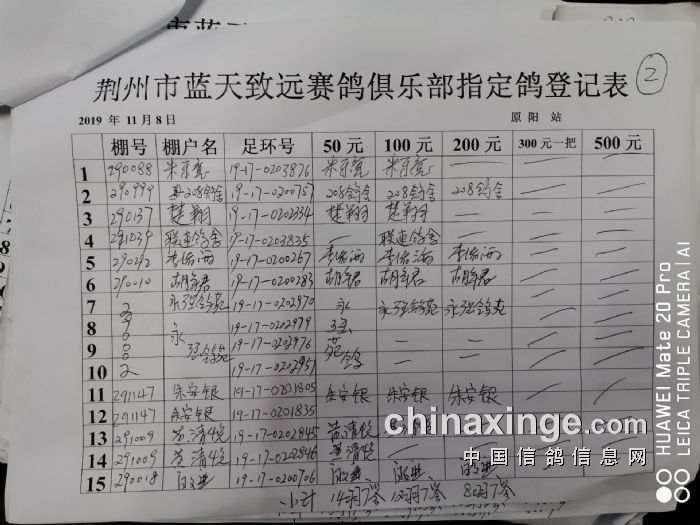 ②
荆州市蓝天致远赛鸽俱乐部指定鸽登记表
2019 年 11 月 8 日 原阳 站
棚号 棚户名 足环号 50元 100元 200元 300元一把 500元
1 290088 朱京亮 19-17-0203876 朱京亮 朱京亮 — — —
2 290999 208鸽舍 19-17-0200757 208鸽舍 208鸽舍 208鸽舍 — —
3 290137 楚翔 19-17-0202334 楚翔 楚翔 — — —
4 291039 联连鸽舍 19-17-0203835 — 联连鸽舍 — — —
5 290292 19-17-0200267 — —
6 290010 胡年君 19-17-0200283 胡年君 胡年君 胡年君 — —
7 永强鸽苑 19-17-0202970 永 永强鸽苑 永强鸽苑 — —
8 永 19-17-0202979 强 — — — —
9 强鸽苑 19-17-0202976 苑 — — — —
10 19-17-0202951 鸽 — — — —
11 291147 朱安银 19-17-0201805 朱安银 朱安银 朱安银 — —
12 291147 朱安银 19-17-0201835
13 291009 黄清悦 19-17-0202845 黄清悦
14 291009 黄清悦 19-17-0202846 黄清悦
15 290018 19-17-0200706
小计 14羽 12羽 8羽
chinaxinge.com
中国信鸽信息网
HUAWEI Mate 20 Pro
LEICA TRIPLE CAMERA | AI